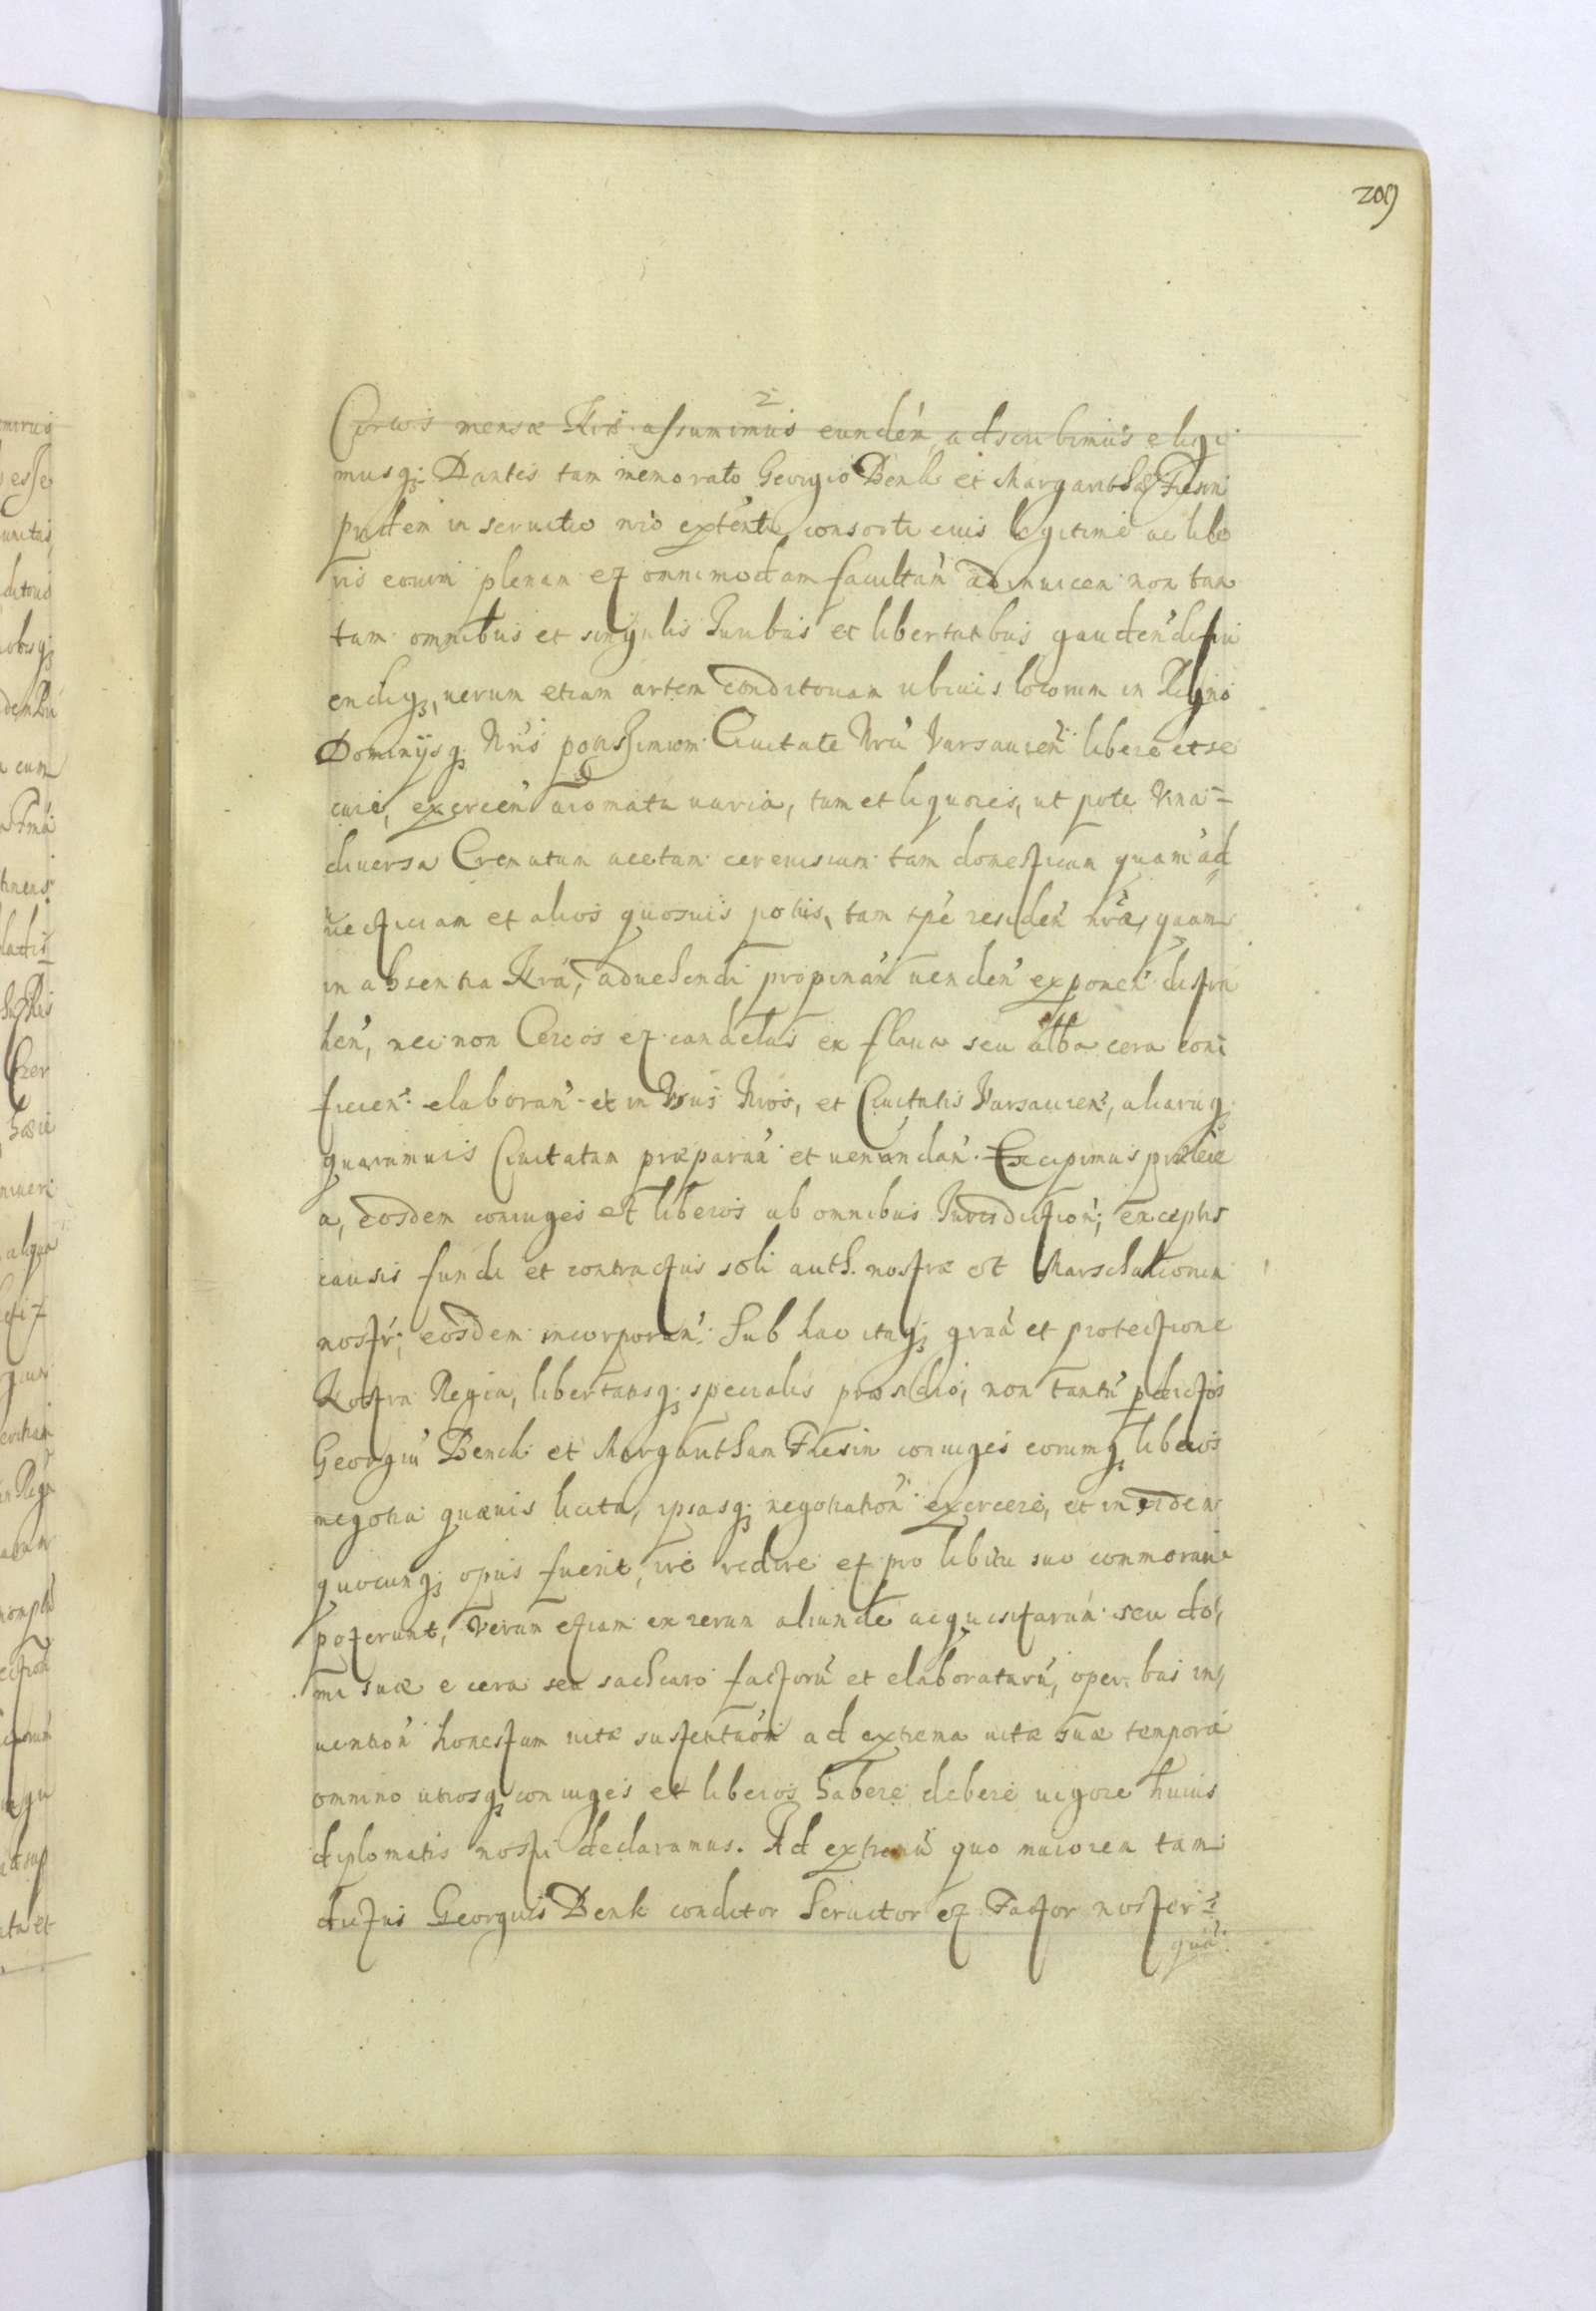 209
mensæ Nræ assumimus eundem, adscribimus eligi
musq3 Dantes tam memorato Georgio Benk et Margarethæ Fresin
pridem in seruitio nro extenti, consorti eius legitimè ac libe
ris eorum plenam et omnimodam facultam adinuicem non tan
tum omnibus et singulis Iuribus et libertatbus gauden̄di fru
endiq3, uerum etiam artem conditoriam ubiuis locorum in Regno
Dominijsq3 Nris potissimum Ciuitate Nra Varsauien̄ liberè et se
curè, exercen̄ aromata uaria, tum et liquores, ut pote Vina
diuersa Crematum acetum cereuisiam tam domesticam quam ad
uecticiam et alios quosuis potus, tam tp̄e residen̄ nræ, quam
in absentia Nra, aduehendi propinan̄ uenden̄ exponen̄ distra
hen̄, nec non Cereos et candelas ex flaua seu alba cera con
ficien̄ elaboran̄ et in Vsus Nros, et Ciuitatis Varsauien̄, aliarūq3
quarumuis Ciuitatum præparan̄ et uenundan̄. Excipimus præterе
a, eosdem coniuges et liberos ab omnibus Iurisdiction̄; exceptis
causis fundi et contractus soli auth. nostræ et Marschalcorum
nostr̄; eosdem incorporan̄. Sub hac itaq3 gra̅a et protectione
Nostra Regia, libertatisq3 specialis præsidio, non tantū p̄dictos
Georgiū Benck et Margaretham Fresin coniuges eorumq3 liberos
negotia quæuis licita, ipsasq3 negotiation̄ exercere, et in eisdem
quocunq3 opus fuerit, ire redire et pro libitu suo commorari
poterunt, Verum etiam ex rerum aliunde acquisitarum seu do,
mi suæ e cera seu sacharo factorū et elaboratarū, operibus in,
uention̄ honestam uitæ sustentaōn ad extrema uitæ suæ tempora
omnino utrosq3 coniuges et liberos habere debere uigore huius
diplomatis nostri declaramus. Ad extremū quo maiorem tam
dictus Georgius Benk conditor Seruitor et Factor noster
qua